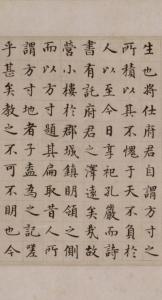 生也將仕府君自謂方寸之
所積以其不愧于天不負於
人以至今日享祀孔嚴而詩
書有託府君之澤遠矣哉故
營小樓於郡城鎮明領之側
而以方寸題其扁取昔人所
謂方寸地者子盍為之記嗟
乎甚矣教之不可不明也今